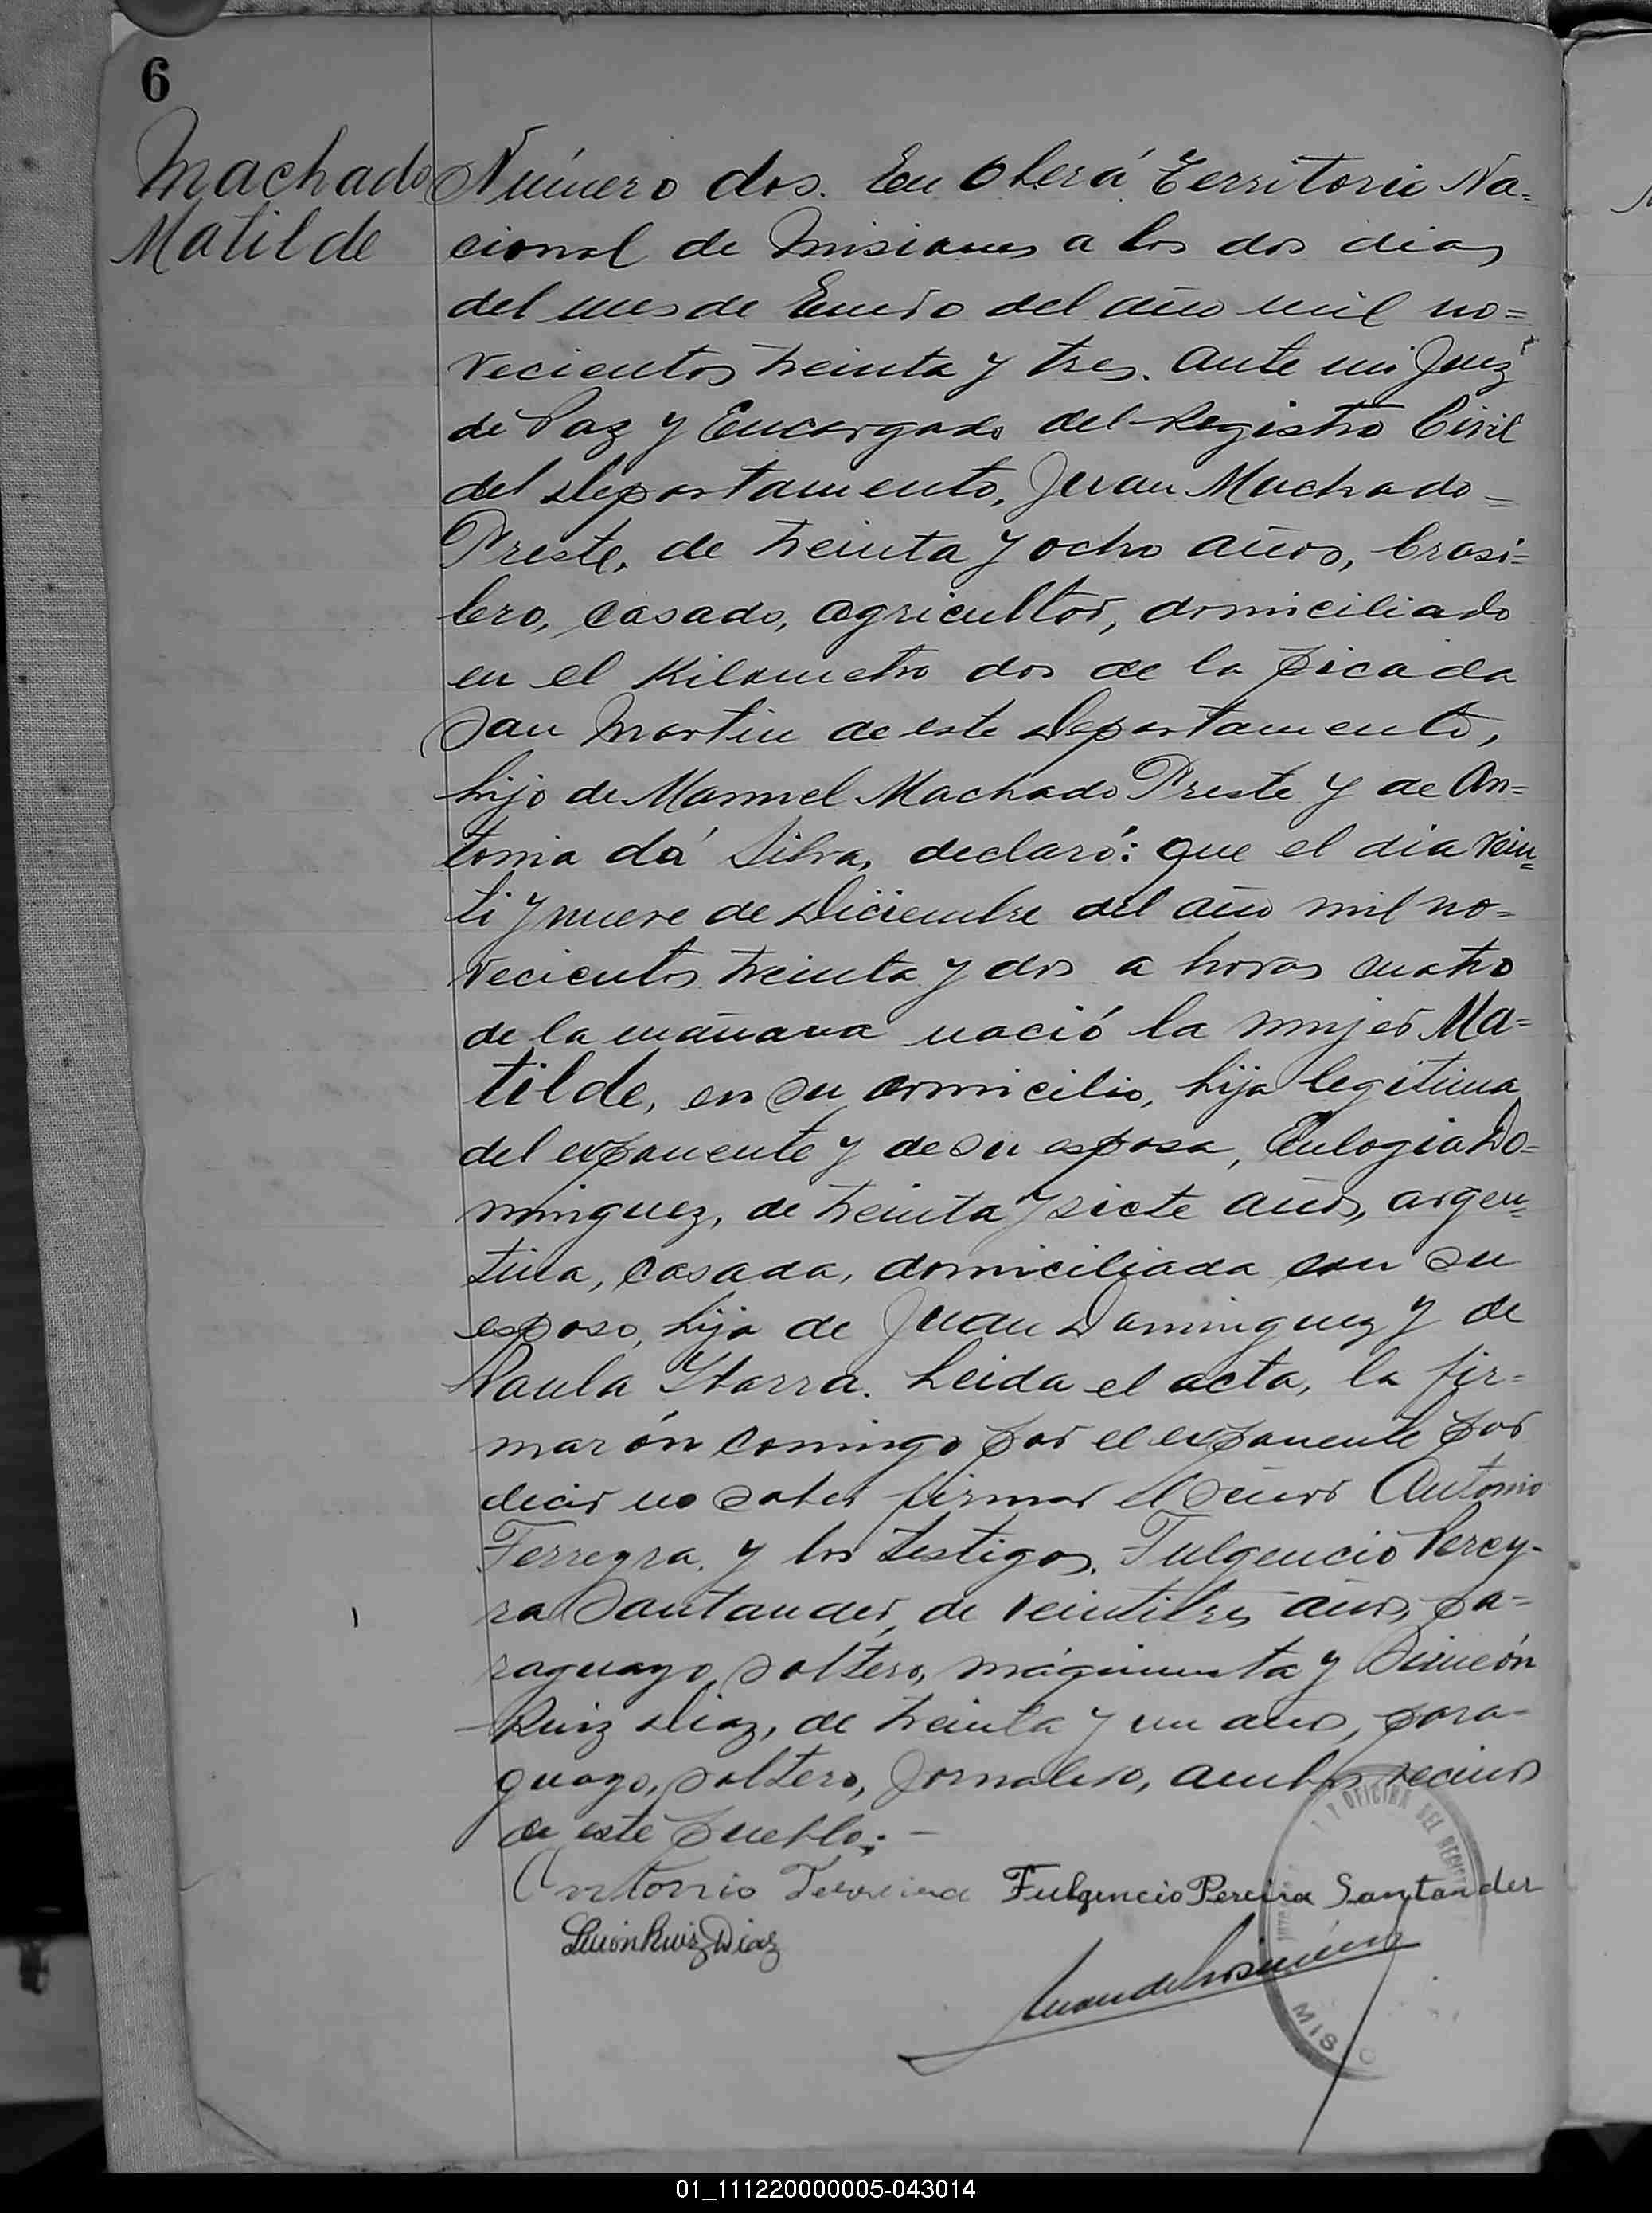 6
Machado
Matilde
Número dos. En Oberá Territorio Na=
cional de Misiones a los dos dias
del mes de Enero del año mil no=
vecientos treinta y tres. ante mi Juez
de Paz y Encargado del Registro Civil
del Departamento, Juan Machado=
Preste, de treinta y ocho años, brasi=
lero, casado, agricultor, domiciliado
en el Kilometro dos de la picada
San Martin de este Departamento,
hijo de Manuel Machado Preste y de An=
tonia dá Silva, declaró: que el dia vein=
ti y nueve de Diciembre del año mil no=
vecientos treinta y dos a horas cuatro
de la mañana nació la mujer Ma=
tilde, en su domicilio, hija legitima
del exponente y de su esposa, Eulogia Do=
minguez, de treinta y siete años, argen=
tina, casada, domiciliada con su
esposo, hija de Juan Dominguez y de
Paula Ybarra. Leida el acta, la fir=
marón comingo por el exponente por
decir no saber firmar el señor Antonio
Ferreyra y los testigos, Fulgencio Perey-
ra Santander, de veintitres años, pa=
raguayo, soltero, máquinista y Simeón
Ruiz Diaz, de treinta y un año, para-
guayo, soltero, Jornalero, ambos vecinos
de este pueblo;-
Antonio Ferreira Fulgencio Pereira Santander
Ruiz Diaz
Y OFICINA DEL REGIST
MIS
01_111220000005-043014